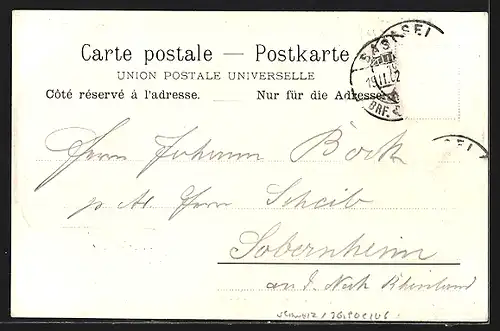 Carte postale — Postkarte
UNION POSTALE UNIVERSELLE
Côté réservé à l'adresse. — Nur für die Adresse.
BASEL
19.II.02
BRF.
Herrn Johann Böck
p. Ad. Herrn Scheib
Sobernheim
an d. Nah Rheinland